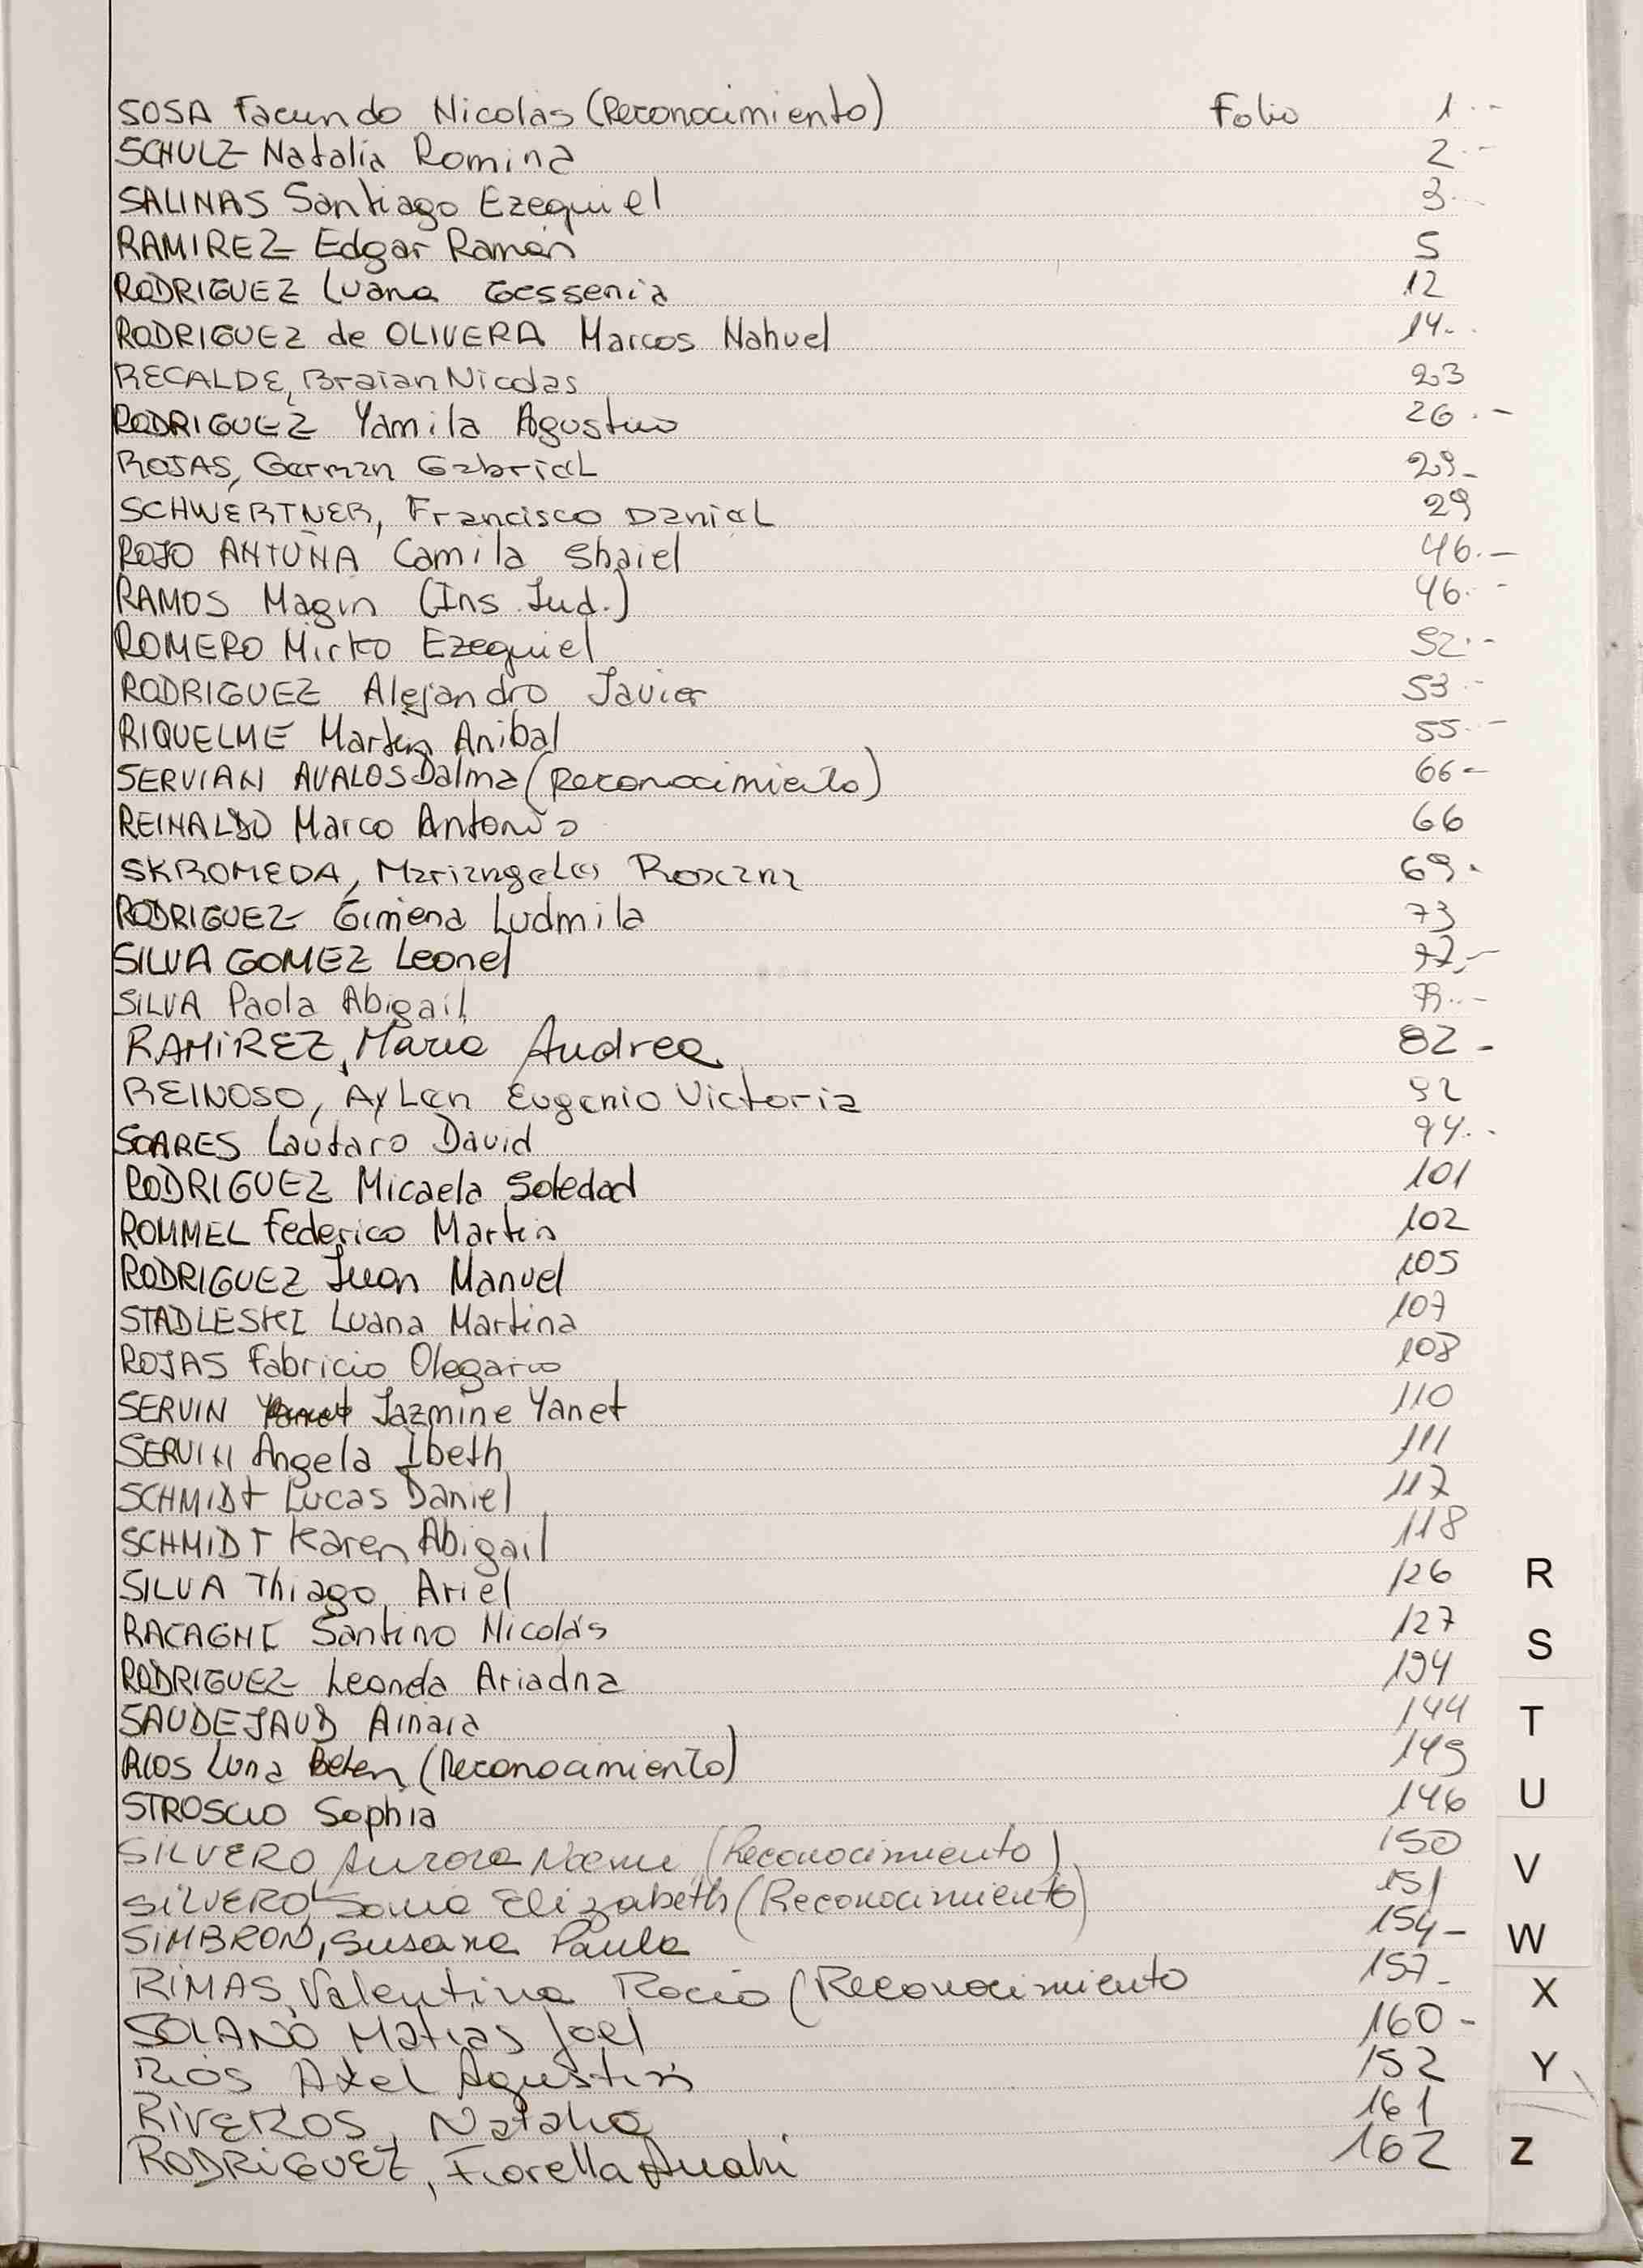 SOSA Facundo Nicolás (Reconocimiento) Folio 1
SCHULZ Natalia Romina 2
SALINAS Santiago Ezequiel 3
RAMIREZ Edgar Ramón 5
RODRIGUEZ Luana Gessenia 12
RODRIGUEZ de OLIVERA Marcos Nahuel 14
RECALDE, Braian Nicolas 23
RODRIGUEZ Yamila Agustina 26
ROJAS, German Gabriel 29
SCHWERTNER, Francisco Daniel 29
ROJO ANTUÑA Camila Shaiel 46
RAMOS Magin (Ins. Jud.) 46
ROMERO Mirko Ezequiel 52
RODRIGUEZ Alejandro Javier 53
RIQUELME Martin Anibal 55
SERVIAN AVALOS Dalma (Reconocimiento) 66
REINALDO Marco Antonio 66
SKROMEDA, Mariangeles Roxana 69
RODRIGUEZ Gimena Ludmila 73
SILVA GOMEZ Leonel 77
SILVA Paola Abigail
RAMIREZ, Maria Andrea 82
REINOSO, Aylen Eugenio Victoria 92
SOARES Lautaro David 94
RODRIGUEZ Micaela Soledad 101
ROMMEL Federico Martin 102
RODRIGUEZ Juan Manuel 105
STADLESKI Luana Martina 107
ROJAS Fabricio Olegario 108
SERVIN Jazmine Yanet 110
SERVIN Angela Ibeth 111
SCHMIDT Lucas Daniel 117
SCHMIDT Karen Abigail 118
SILVA Thiago Ariel 126
RACAGNI Santino Nicolás 127
RODRIGUEZ Leonela Ariadna 134
SAUDEJAUD Ainara 144
RIOS Luna Belen (Reconocimiento) 145
STROSCIO Sophia 146
SILVERO Aurora Noemi (Reconocimiento) 150
SILVERO Sonia Elizabeth (Reconocimiento) 151
SIMBRON, Susana Paula 154
RIMAS, Valentina Rocio (Reconocimiento 157
SOLANO Matias Joel 160
RIOS Axel Agustin 152
RIVEROS, Natalia 161
RODRIGUEZ, Fiorella Anahi 162
R
S
T
U
V
W
X
Y
Z